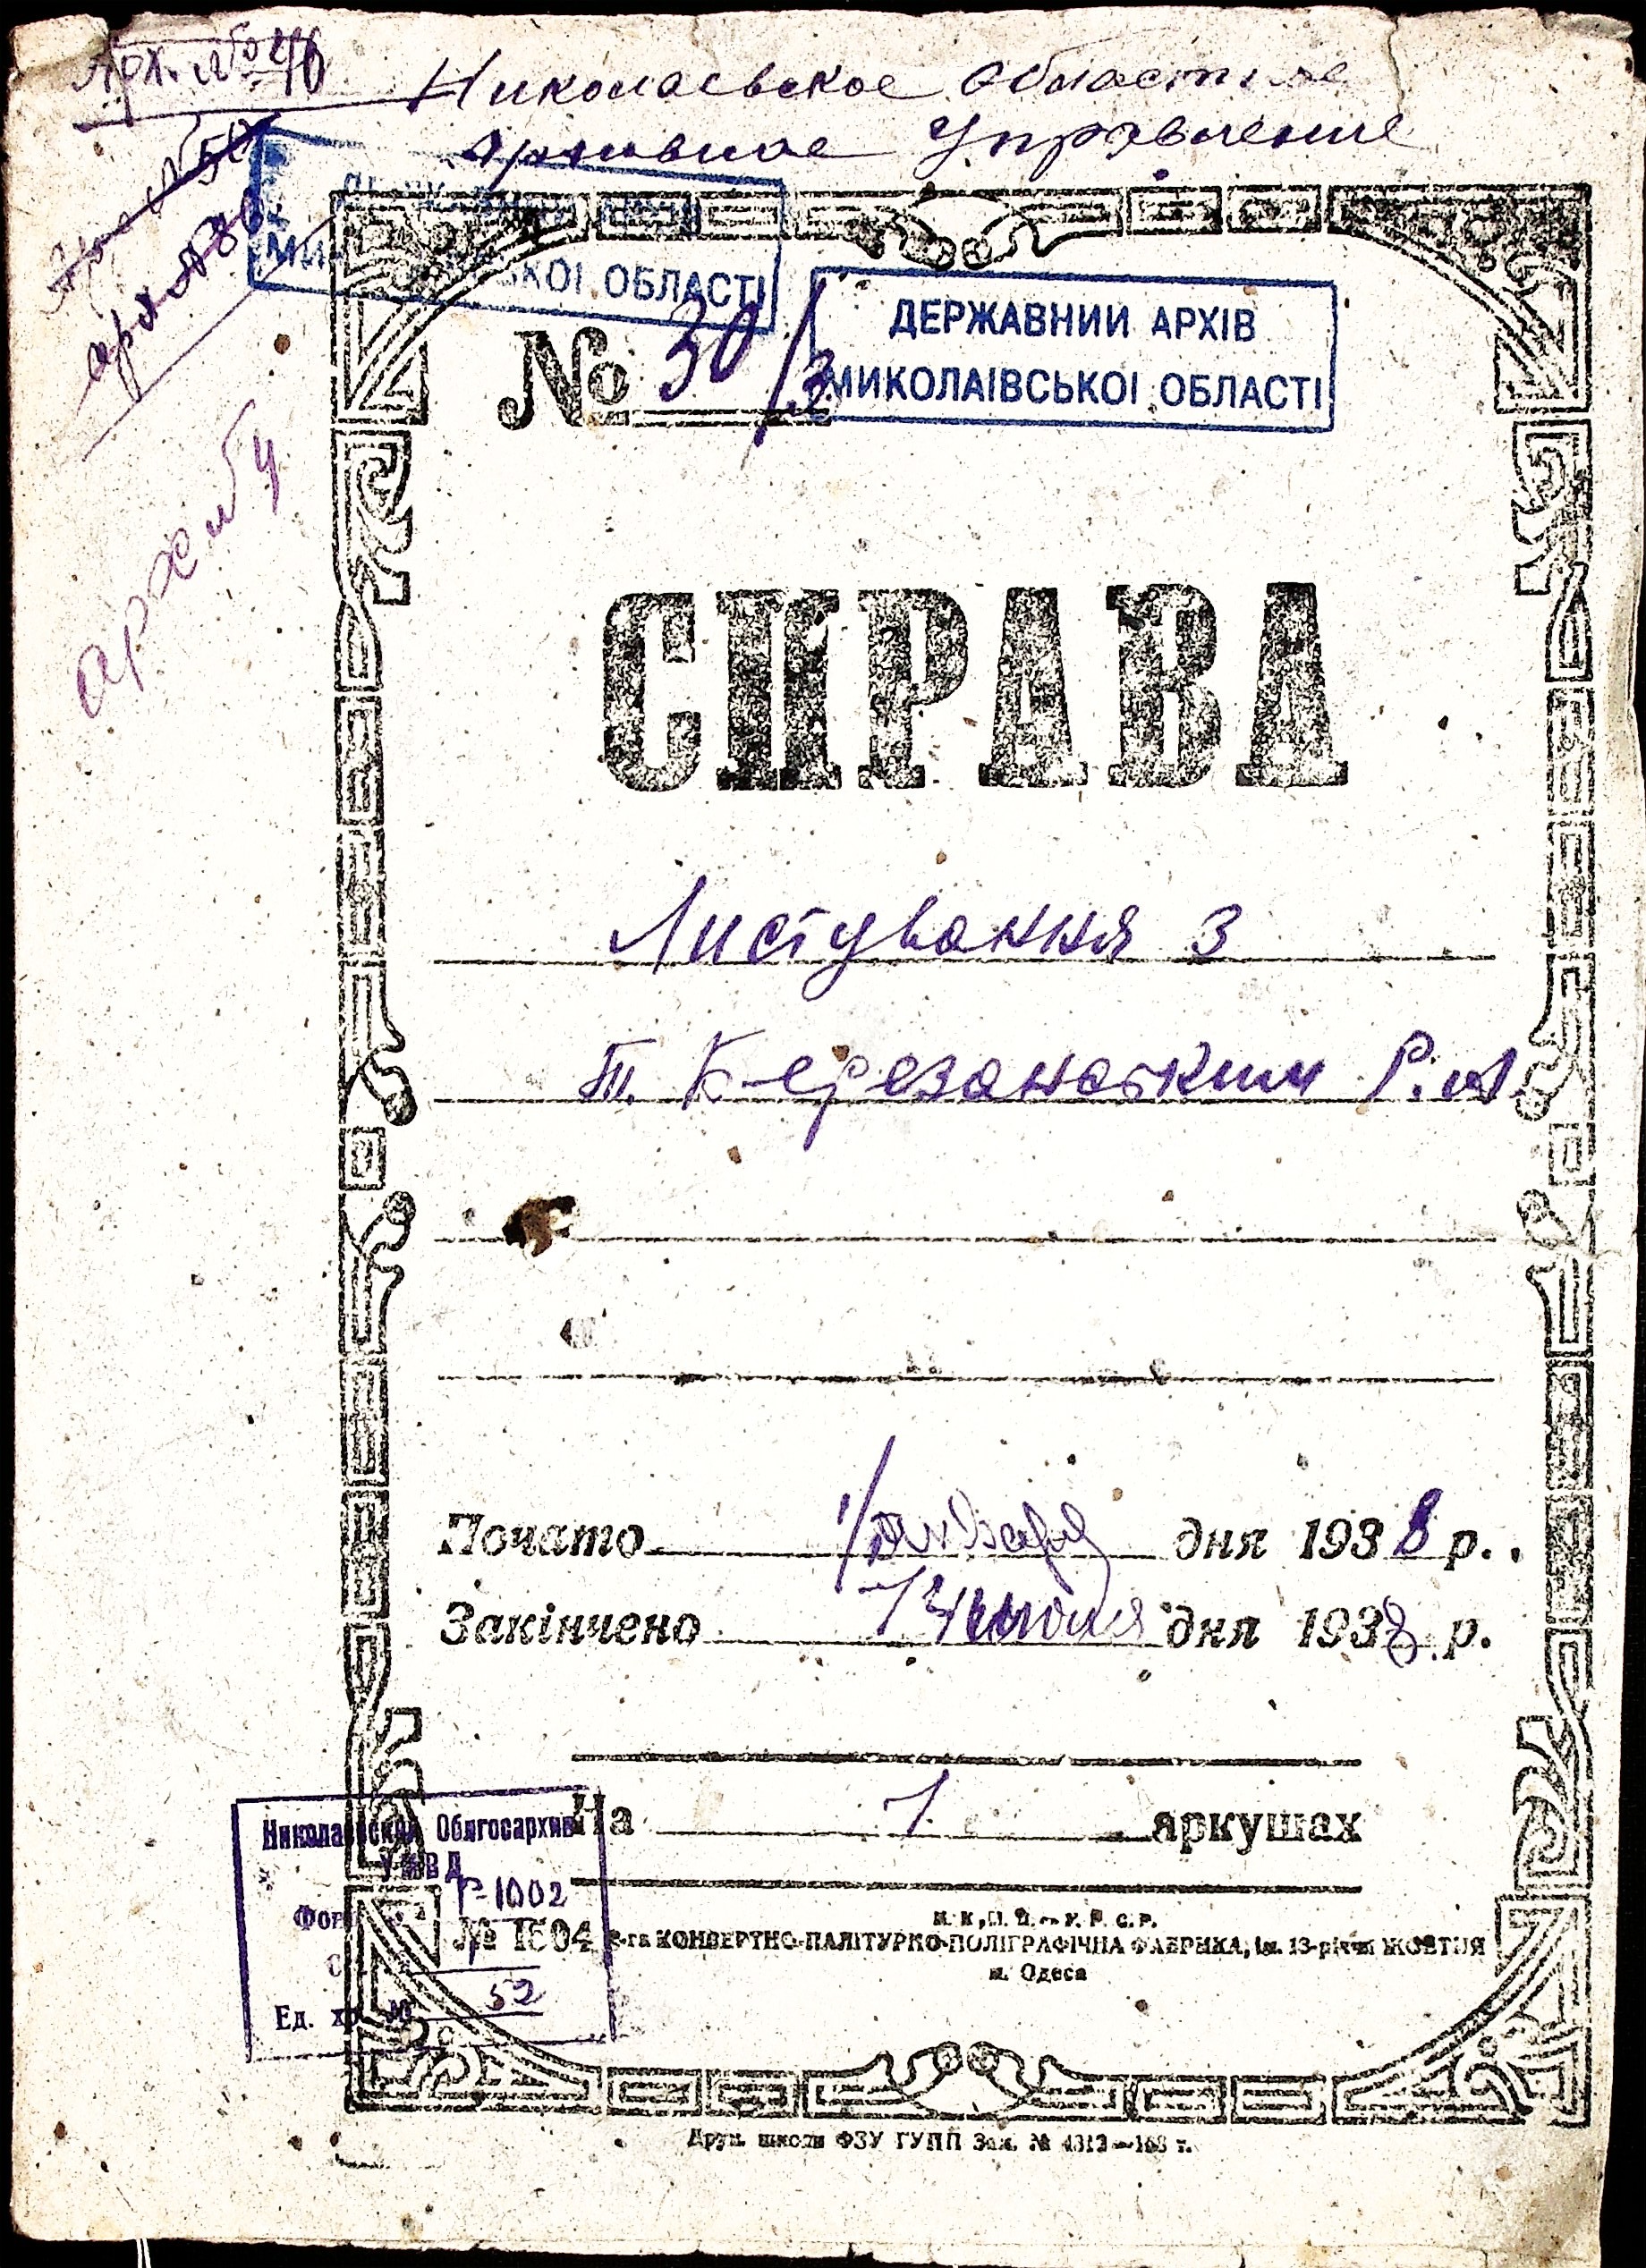 Арх. №
Николаевское областное
Архивное Управление
ОБЛАСТІ
ДЕРЖАВНИЙ АРХІВ
МИКОЛАЇВСЬКОЇ ОБЛАСТІ
№ 30/3
арх
СПРАВА
Листування з
т. Березанським Р.
Почато 1/января дня 1938 р.
Закінчено дня 1938 р.
На 7 аркушах
Николаевский Облгосархив
УМВД
Р-1002
№ 1604
Ед. хр. № 52
М. К. П. П. — У. Р. С. Р.
КОНВЕРТНО-ПАЛІТУРКО-ПОЛІГРАФІЧНА ФАБРИКА, ім. 13-річчя ЖОВТНЯ
м. Одеса
Друк. школи ФЗУ ГУПП Зам. № 4312—168 т.